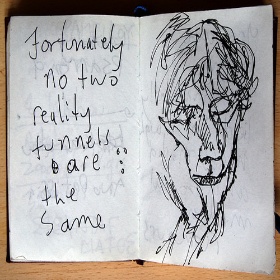 Fortunately
no two
reality
tunnels
are
the
same